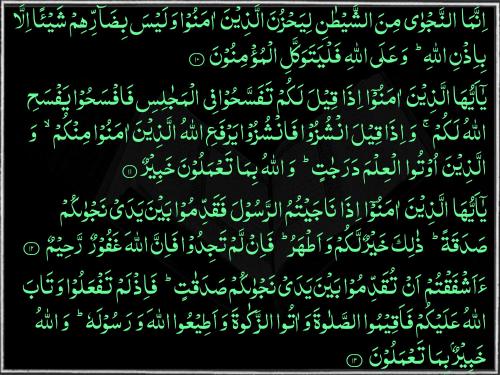 اِنَّمَا النَّجْوٰى مِنَ الشَّيْطٰنِ لِيَحْزُنَ الَّذِيْنَ اٰمَنُوْا وَلَيْسَ بِضَآرِّهِمْ شَيْـًٔا اِلَّا
بِاِذْنِ اللّٰهِ ؕ وَعَلَى اللّٰهِ فَلْيَتَوَكَّلِ الْمُؤْمِنُوْنَ ﴿۱۰﴾
يٰۤاَيُّهَا الَّذِيْنَ اٰمَنُوْۤا اِذَا قِيْلَ لَكُمْ تَفَسَّحُوْا فِى الْمَجٰلِسِ فَافْسَحُوْا يَفْسَحِ
اللّٰهُ لَكُمْ ۚ وَاِذَا قِيْلَ انْشُزُوْا فَانْشُزُوْا يَرْفَعِ اللّٰهُ الَّذِيْنَ اٰمَنُوْا مِنْكُمْ ۙ وَ
الَّذِيْنَ اُوْتُوا الْعِلْمَ دَرَجٰتٍ ؕ وَاللّٰهُ بِمَا تَعْمَلُوْنَ خَبِيْرٌ ﴿۱۱﴾
يٰۤاَيُّهَا الَّذِيْنَ اٰمَنُوْۤا اِذَا نَاجَيْتُمُ الرَّسُوْلَ فَقَدِّمُوْا بَيْنَ يَدَىْ نَجْوٰٮكُمْ
صَدَقَةً ؕ ذٰلِكَ خَيْرٌ لَّكُمْ وَاَطْهَرُ ؕ فَاِنْ لَّمْ تَجِدُوْا فَاِنَّ اللّٰهَ غَفُوْرٌ رَّحِيْمٌ ﴿۱۲﴾
ءَاَشْفَقْتُمْ اَنْ تُقَدِّمُوْا بَيْنَ يَدَىْ نَجْوٰٮكُمْ صَدَقٰتٍ ؕ فَاِذْ لَمْ تَفْعَلُوْا وَتَابَ
اللّٰهُ عَلَيْكُمْ فَاَقِيْمُوا الصَّلٰوةَ وَاٰتُوا الزَّكٰوةَ وَاَطِيْعُوا اللّٰهَ وَرَسُوْلَهٗ ؕ وَاللّٰهُ
خَبِيْرٌۢ بِمَا تَعْمَلُوْنَ ﴿۱۳﴾